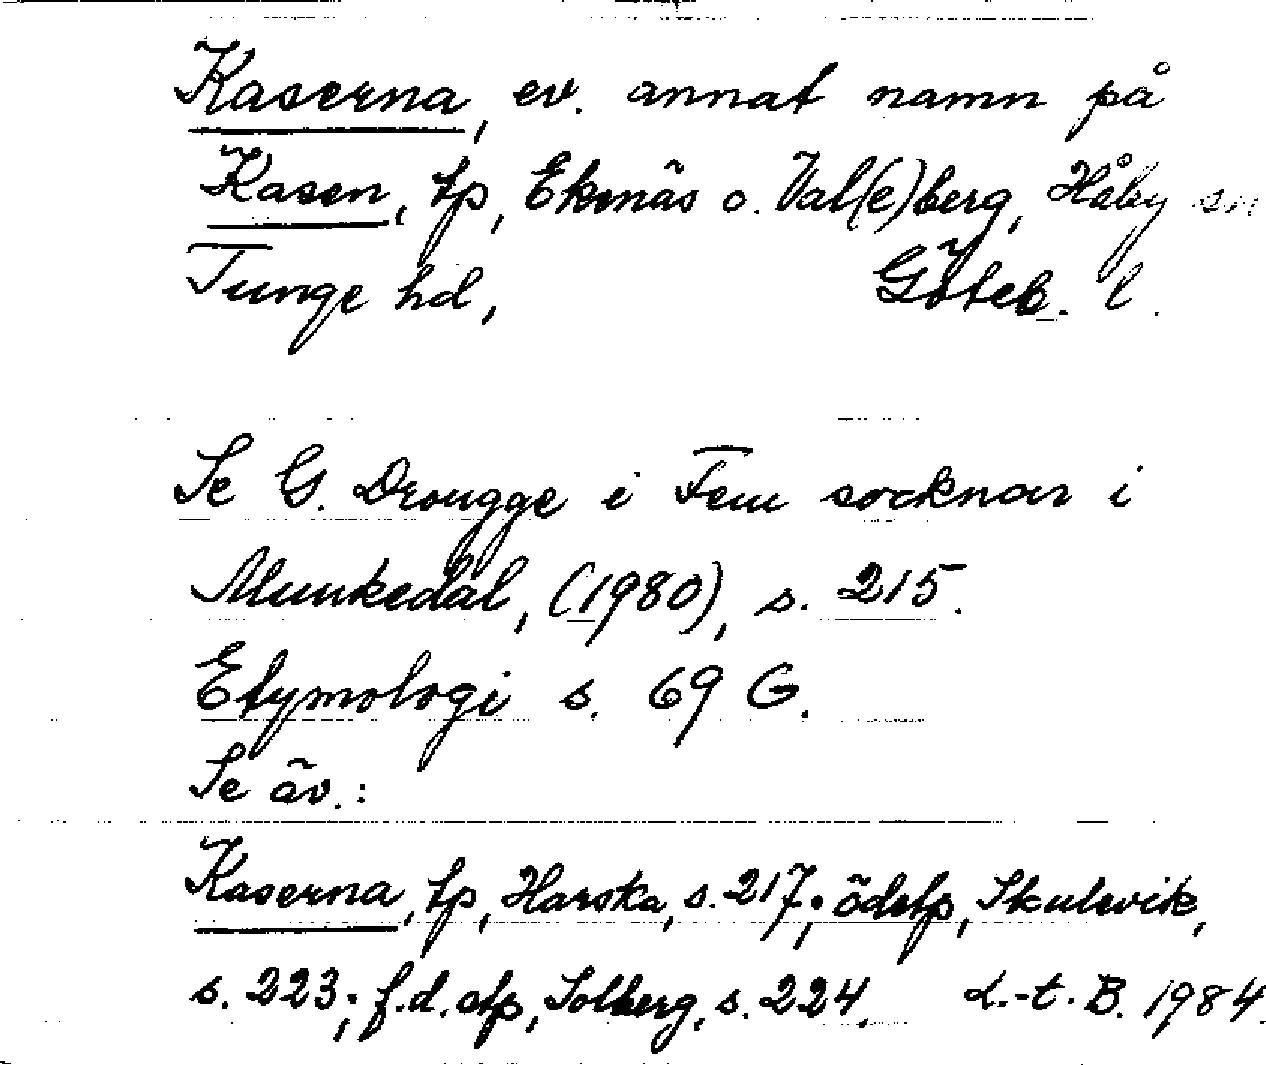 Kaserna, ev. annat namn på
Kasen, tp, Ekenäs o. Val(e)berg, Håby sn
Tunge hd, Göteb. l.
Se G. Drougge i Fem socknar i
Munkedal, (1980), s. 215.
Etymologi s. 69 G.
Se äv.:
Kaserna, tp, Harska, s. 217; ödetp, Skulevik,
s. 223; f.d. stp, Solberg, s. 224. L.-t. B. 1984.